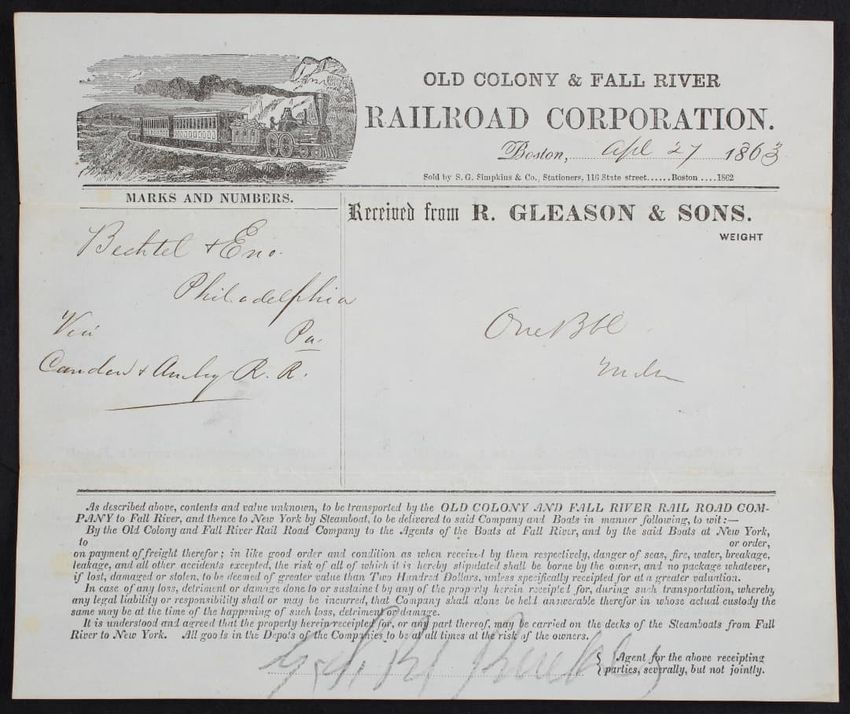 OLD COLONY & FALL RIVER
RAILROAD CORPORATION.
Boston, Apl 27 1863
Sold by S. G. Simpkins & Co., Stationers, 116 State street......Boston ....1862
MARKS AND NUMBERS.
Received from R. GLEASON & SONS.
WEIGHT
Bechtel & Eno.
Philadelphia
Via Pa
Camden & Amboy R. R.
One Bbl
As described above, contents and value unknown, to be transported by the OLD COLONY AND FALL RIVER RAIL ROAD COM-
PANY to Fall River, and thence to New York by Steamboat, to be delivered to said Company and Boats in manner following, to wit:—
By the Old Colony and Fall River Rail Road Company to the Agents of the Boats at Fall River, and by the said Boats at New York,
to or order,
on payment of freight therefor; in like good order and condition as when received by them respectively, danger of seas, fire, water, breakage,
leakage, and all other accidents excepted, the risk of all of which it is hereby stipulated shall be borne by the owner, and no package whatever,
if lost, damaged or stolen, to be deemed of greater value than Two Hundred Dollars, unless specifically receipted for at a greater valuation.
In case of any loss, detriment or damage done to or sustained by any of the property herein receipted for, during such transportation, whereby
any legal liability or responsibility shall or may be incurred, that Company shall alone be held answerable therefor in whose actual custody the
same may be at the time of the happening of such loss, detriment or damage.
It is understood and agreed that the property herein receipted for, or any part thereof, may be carried on the decks of the Steamboats from Fall
River to New York. All goods in the Depots of the Companies to be at all times at the risk of the owners.
Agent for the above receipting
parties, severally, but not jointly.